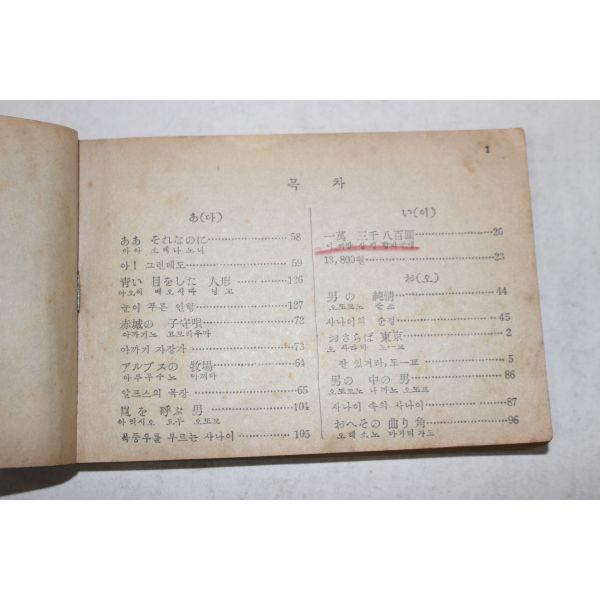 1
목 차
あ(아)
ああ それなのに 58
아아 소레나노니
아! 그런데도 59
靑い 目をした 人形 126
아오이 메오시다 닝교
눈이 푸른 인형 127
赤城の 子守唄 72
아까기노 고모리우따
아까기 자장가 73
アルプスの 牧場 64
아루푸수노 마끼바
알프스의 목장 65
嵐を 呼ぶ 男 104
아라시오 요부 오또꼬
폭풍우를 부르는 사나이 105
い(이)
一萬 三千 八百圓 20
13,800원 23
お(오)
男の 純情 44
오또꼬노 준죠
사나이의 순정 45
おさらば 東京 2
오 사라바 도—꾜
잘 있거라, 도—꾜 5
男の 中の 男 86
오또꼬노 나까노 오또꼬
사나이 속의 사나이 87
おへその 曲り 角 96
오헤소노 마가리 가도